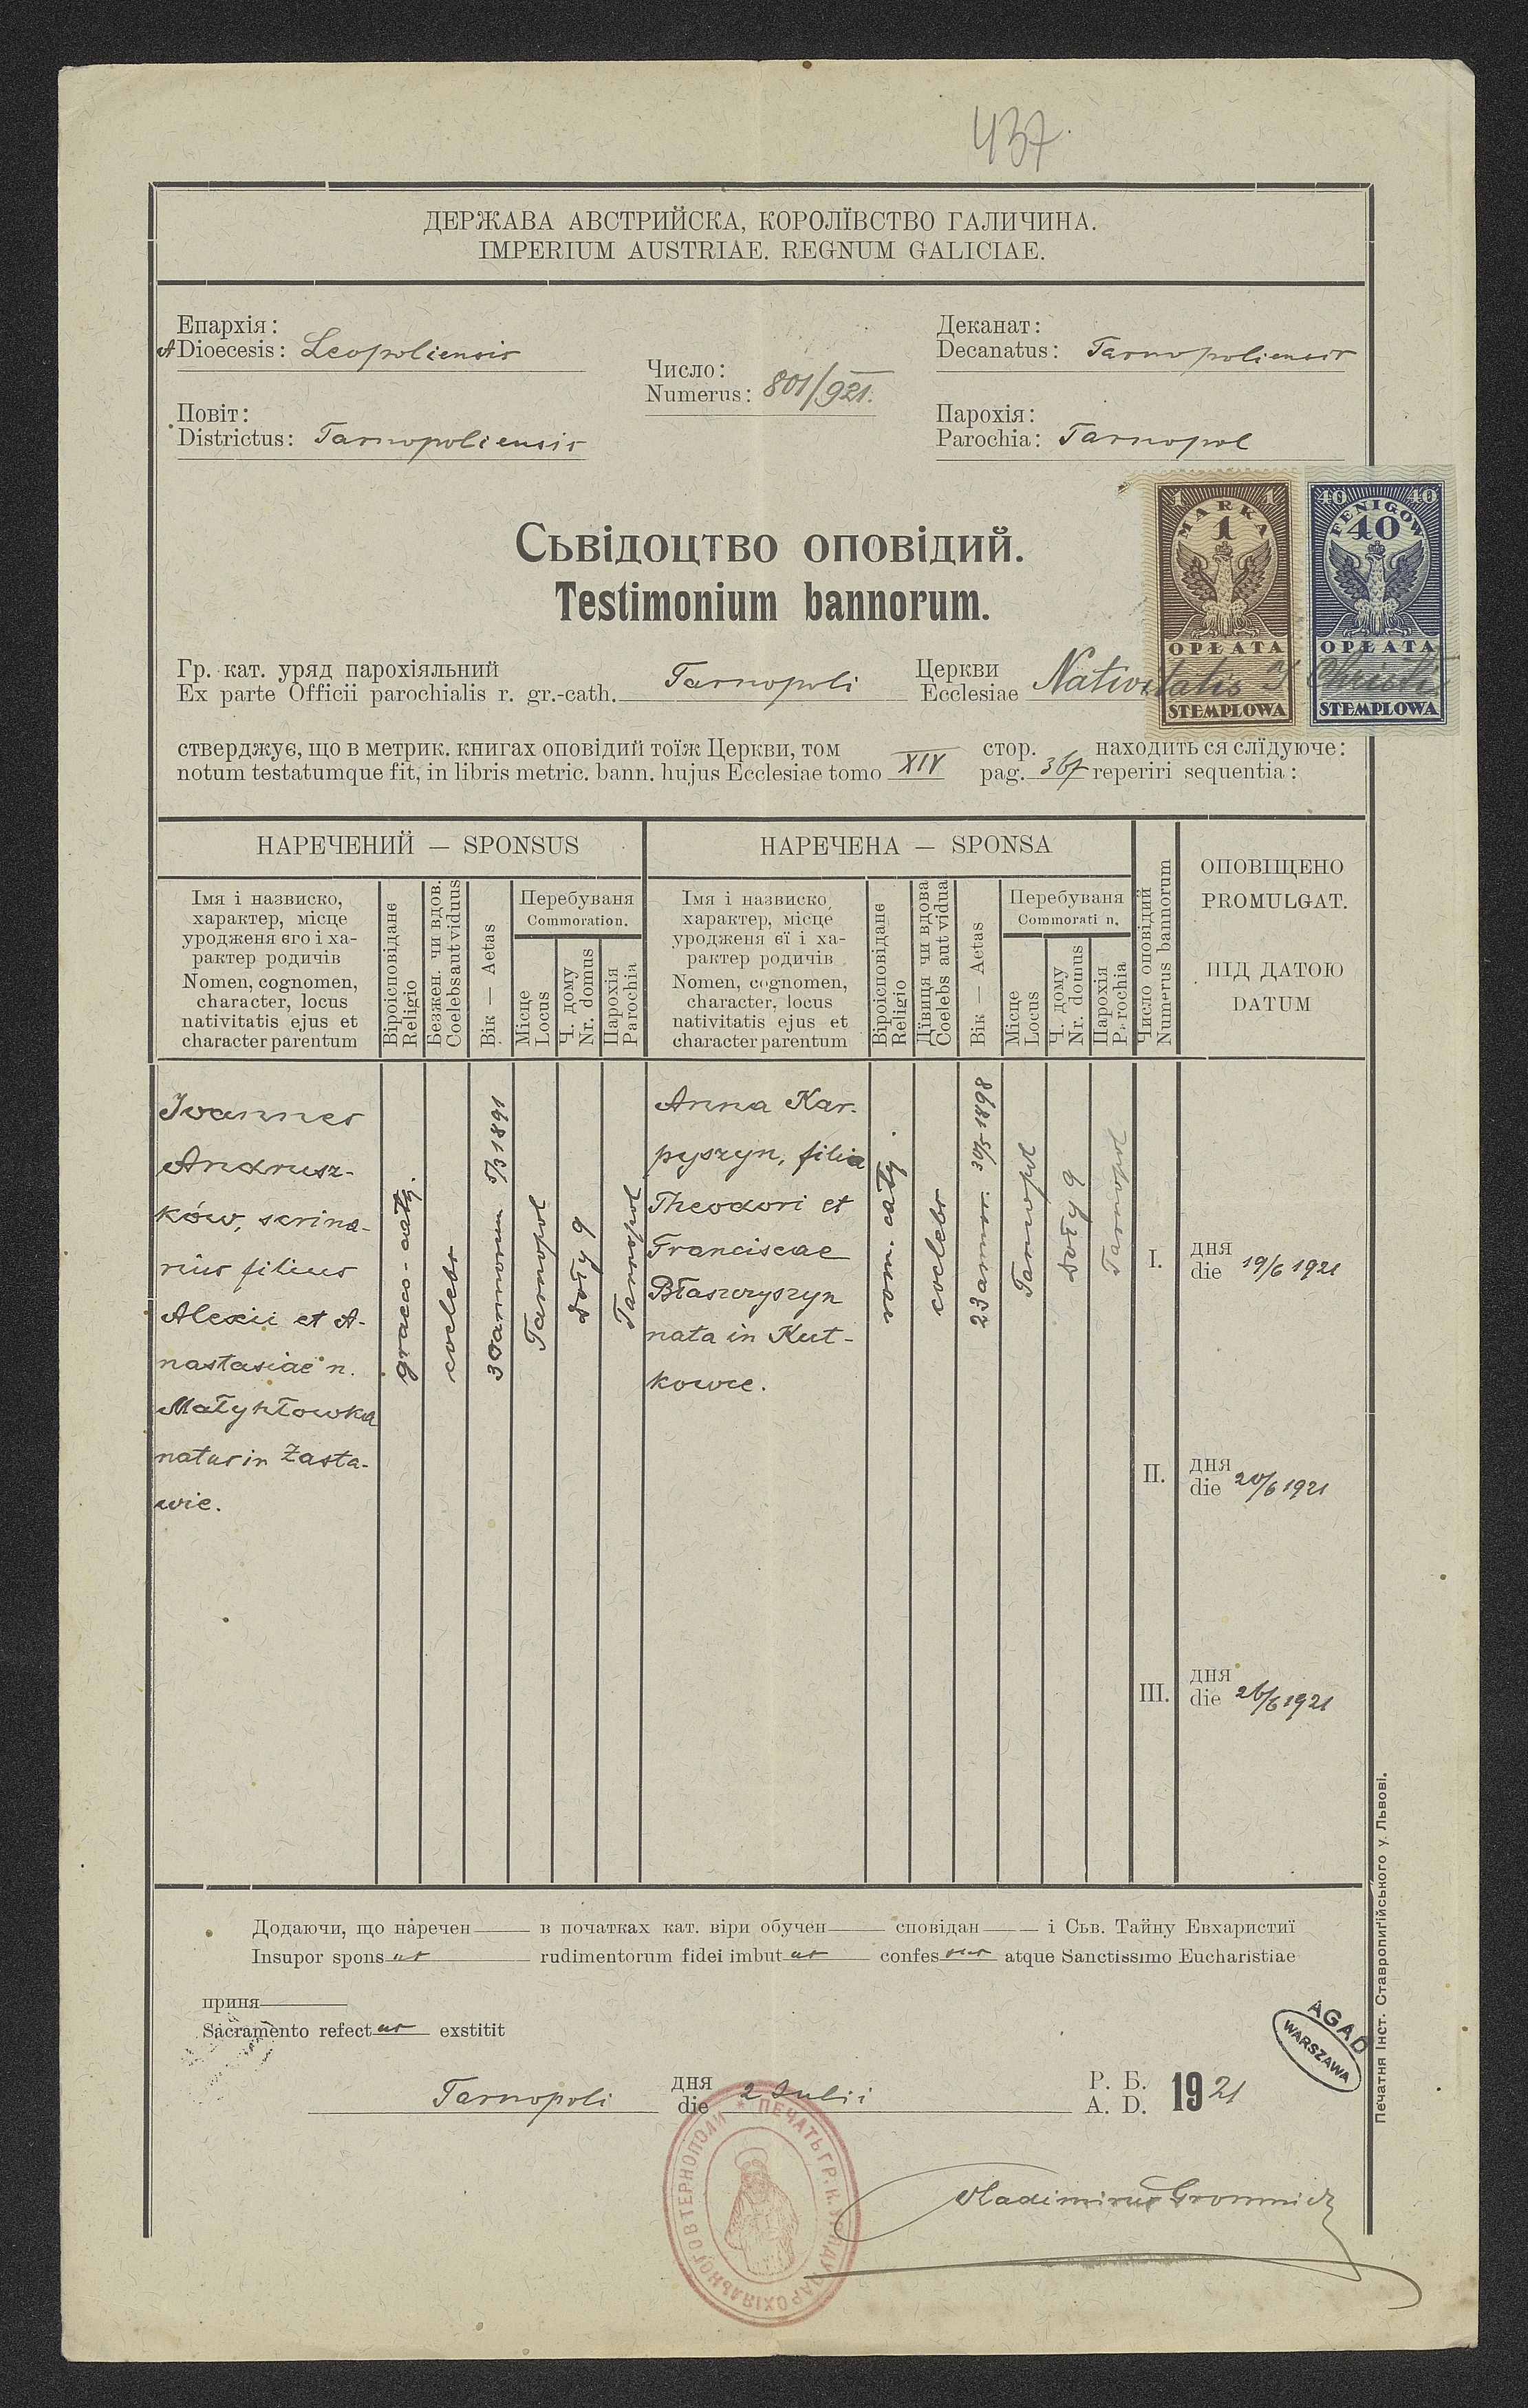 437
ДЕРЖАВА АВСТРИЙСКА, КОРОЛЇВСТВО ГАЛИЧИНА.
IMPERIUM AUSTRIAE. REGNUM GALICIAE.
Епархія:
A Dioecesis: Leopoliensis
Число:
Numerus: 801/921.
Деканат:
Decanatus: Tarnopoliensis
Повіт:
Districtus: Tarnopoliensis
Парохія:
Parochia: Tarnopol
1 1
MARKA
1
OPŁATA
STEMPLOWA
40 40
FENIGÓW
40
OPŁATA
STEMPLOWA
Сьвідоцтво оповідий.
Testimonium bannorum.
Гр. кат. уряд парохіяльний Церкви
Ex parte Officii parochialis r. gr.-cath. Tarnopoli Ecclesiae Nativitatis Christi
стверджує, що в метрик. книгах оповідий тоїж Церкви, том стор. находить ся слїдуюче:
notum testatumque fit, in libris metric. bann. hujus Ecclesiae tomo XIV pag. 367 reperiri sequentia:
НАРЕЧЕНИЙ — SPONSUS
Імя і назвиско,
характер, місце
уродженя єго і ха-
рактер родичів
Nomen, cognomen,
character, locus
nativitatis ejus et
character parentum
Віроісповіданє
Religio
Безжен. чи вдов.
Coelebs aut viduus
Вік — Aetas
Перебуваня
Commoration.
Місце
Locus
Ч. дому
Nr. domus
Парохія
Parochia
НАРЕЧЕНА — SPONSA
Імя і назвиско,
характер, місце
уродженя єї і ха-
рактер родичів
Nomen, cognomen,
character, locus
nativitatis ejus et
character parentum
Віроісповіданє
Religio
Дївиця чи вдова
Coelebs aut vidua
Вік — Aetas
Перебуваня
Commorati n.
Місце
Locus
Ч. дому
Nr. domus
Парохія
Parochia
Число оповідий
Numerus bannorum
ОПОВІЩЕНО
PROMULGAT.
ПІД ДАТОЮ
DATUM
Ioannes
Andrusz-
ków, scrina-
rius filius
Alexii et A-
nastasiae n.
Małychłowka
natus in Zasta-
wie.
graeco-cath.
coelebs
30 annorum 5/3 1891
Tarnopol
Doły 9
Tarnopol
Anna Kar-
pyszyn, filia
Theodori et
Franciscae
Błaszczyszyn
nata in Kut-
kowce.
rom. cath.
coelebs
23 annor. 30/5 1898
Tarnopol
Doły 9
Tarnopol
I. дня
die 19/6 1921
II. дня
die 20/6 1921
III. дня
die 26/6 1921
Додаючи, що наречен в початках кат. віри обучен сповідан і Сьв. Тайну Евхаристиї
Insupor spons us rudimentorum fidei imbut us confes sus atque Sanctissimo Eucharistiae
приня
Sacramento refect us exstitit
AGAD
WARSZAWA
Tarnopoli дня
die 2 Julii Р. Б.
A. D. 1921
ПЕЧАТЬ ГР. К. УРЯДУ ПАРОХІЯЛЬНОГО В ТЕРНОПОЛИ
Vladimirus Gromnicki
Печатня Інст. Ставропигійського у Львові.